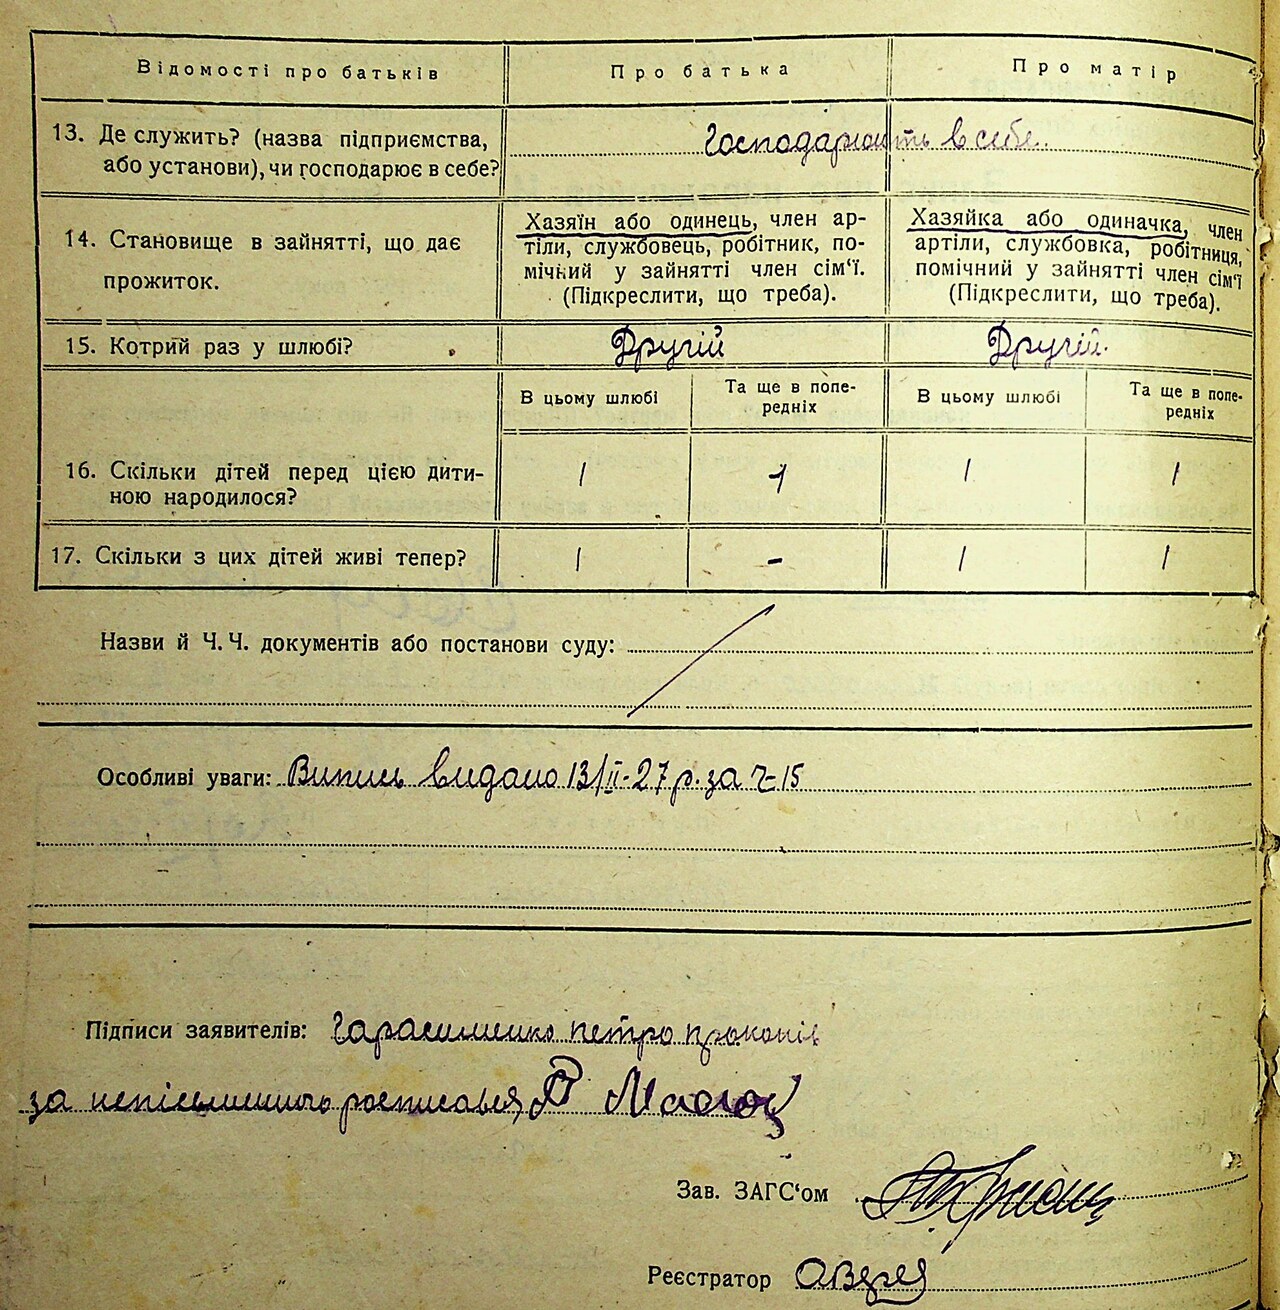 Відомості про батьків
Про батька
Про матір
13. Де служить? (назва підприємства,
або установи), чи господарює в себе?
Господарюють в себе.
14. Становище в зайнятті, що дає
прожиток.
Хазяїн або одинець, член ар-
тіли, службовець, робітник, по-
мічний у зайнятті член сім'ї.
(Підкреслити, що треба).
Хазяйка або одиначка, член
артіли, службовка, робітниця,
помічний у зайнятті член сім'ї
(Підкреслити, що треба).
15. Котрий раз у шлюбі?
Другій
Другій.
В цьому шлюбі
Та ще в попе-
редніх
В цьому шлюбі
Та ще в попе-
редніх
16. Скільки дітей перед цією дити-
ною народилося?
1
1
1
1
17. Скільки з цих дітей живі тепер?
1
-
1
1
Назви й Ч. Ч. документів або постанови суду:
Особливі уваги: Випись видано 13/II-27 р. за Ч-15
Підписи заявителів: Гарасименко петро прокопів
за непісьменного росписався
Зав. ЗАГС'ом
Реєстратор